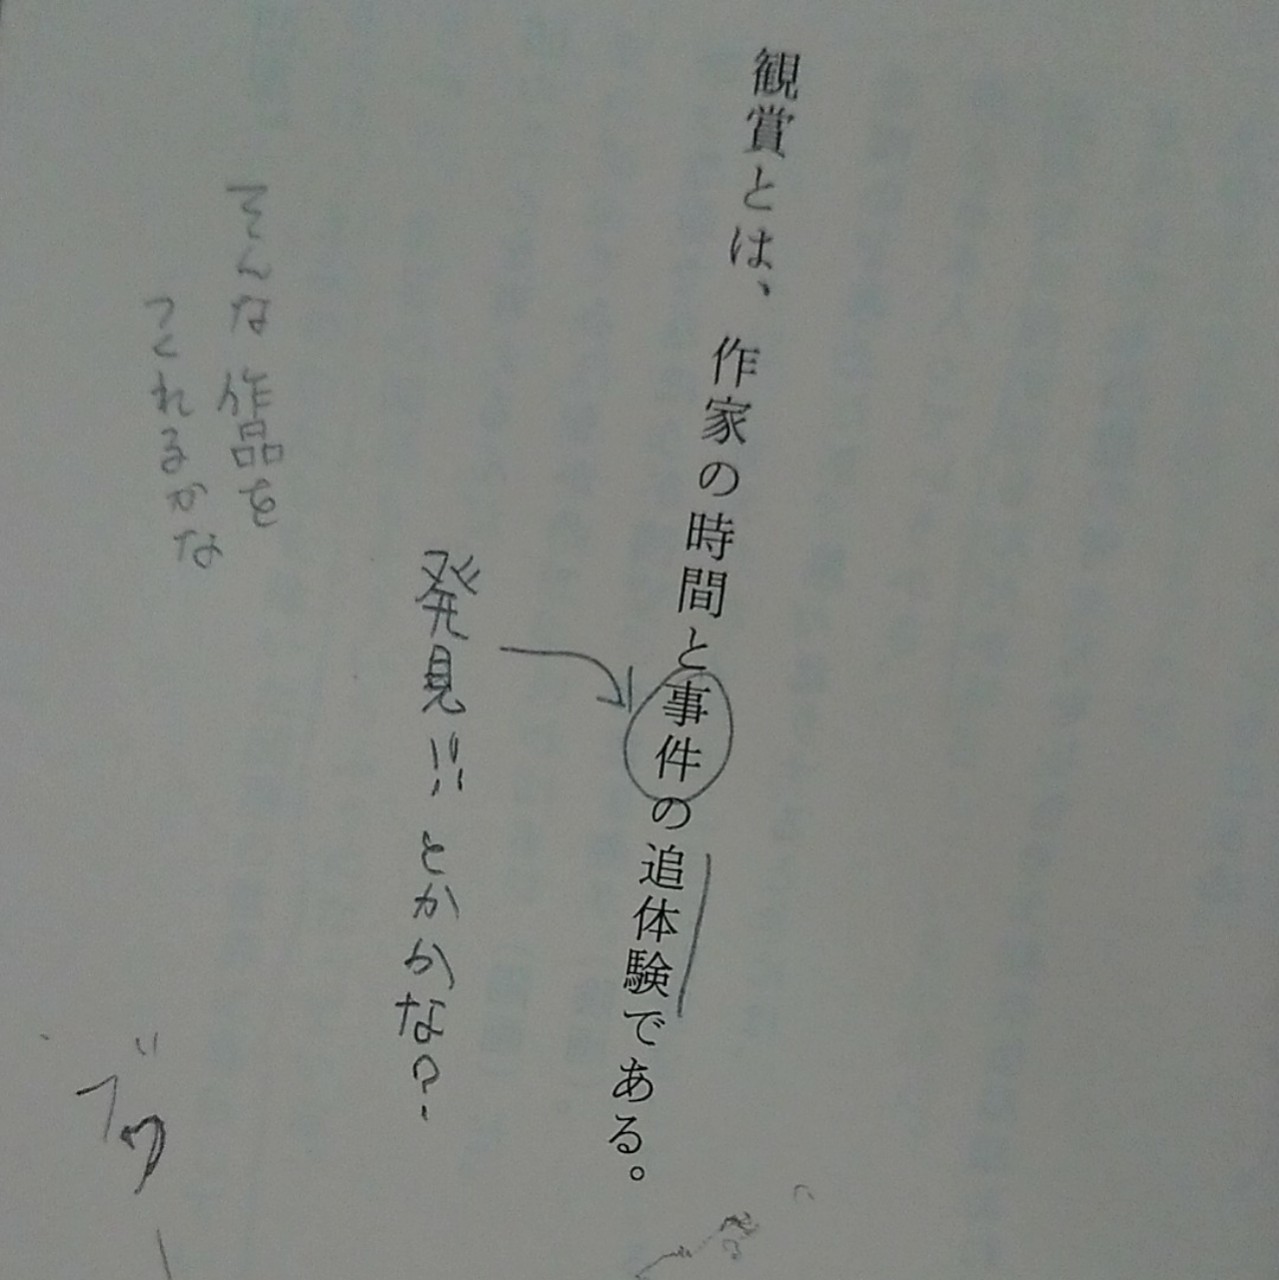 観賞とは、作家の時間と事件の追体験である。
発見!!とかかな?
そんな作品を
つくれるかな